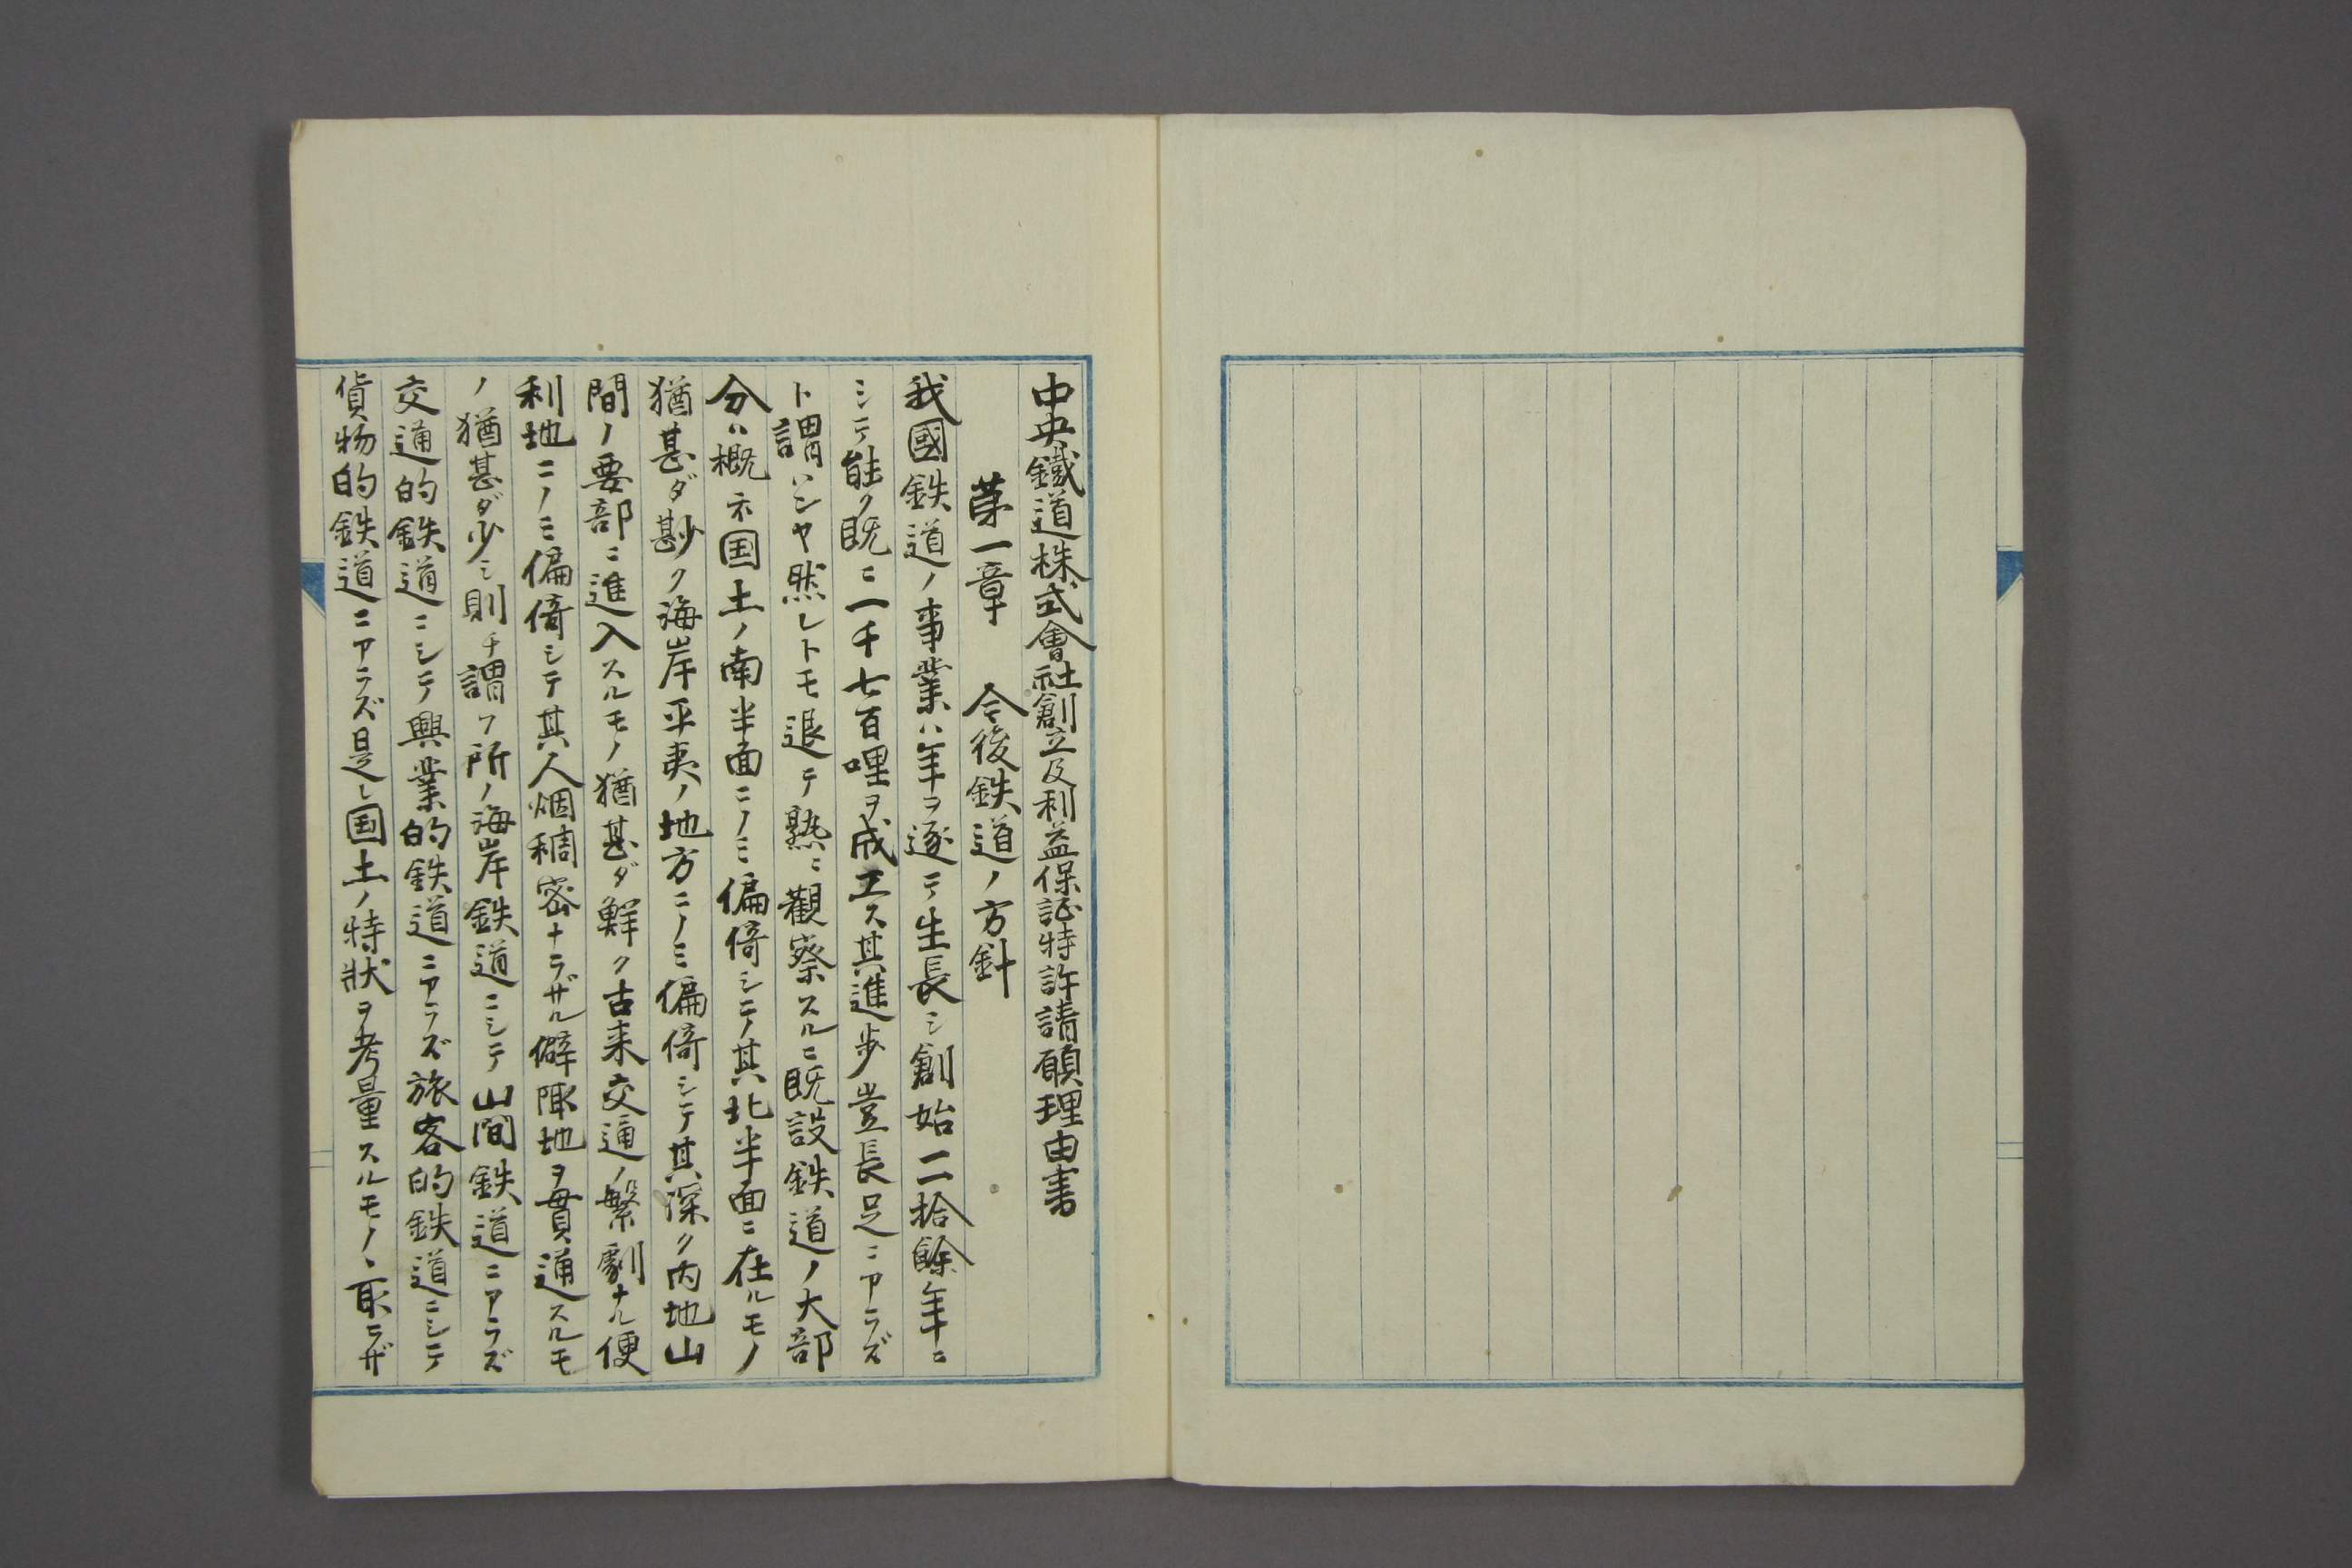 中央鐵道株式會社創立及利益保証特許請願理由書
第一章　今後鉄道ノ方針
我國鉄道ノ事業ハ年ヲ逐テ生長シ創始二拾餘年ニ
シテ能ク既ニ一千七百哩ヲ成工ス其進歩豈長足ニアラズ
ト謂ハンヤ然レトモ退テ熟ニ觀察スルニ既設鉄道ノ大部
分ハ概ネ国土ノ南半面ニノミ偏倚シテ其北半面ニ在ルモノ
猶甚ダ尠ク海岸平夷ノ地方ニノミ偏倚シテ其深ク内地山
間ノ要部ニ進入スルモノ猶甚ダ鮮ク古来交通ノ繁劇ナル便
利地ニノミ偏倚シテ其人烟稠密ナラザル僻陬地ヲ貫通スルモ
ノ猶甚ダ少シ則チ謂フ所ノ海岸鉄道ニシテ山間鉄道ニアラズ
交通的鉄道ニシテ興業的鉄道ニアラズ旅客的鉄道ニシテ
貨物的鉄道ニアラズ是レ国土ノ特状ヲ考量スルモノヽ取ラザ